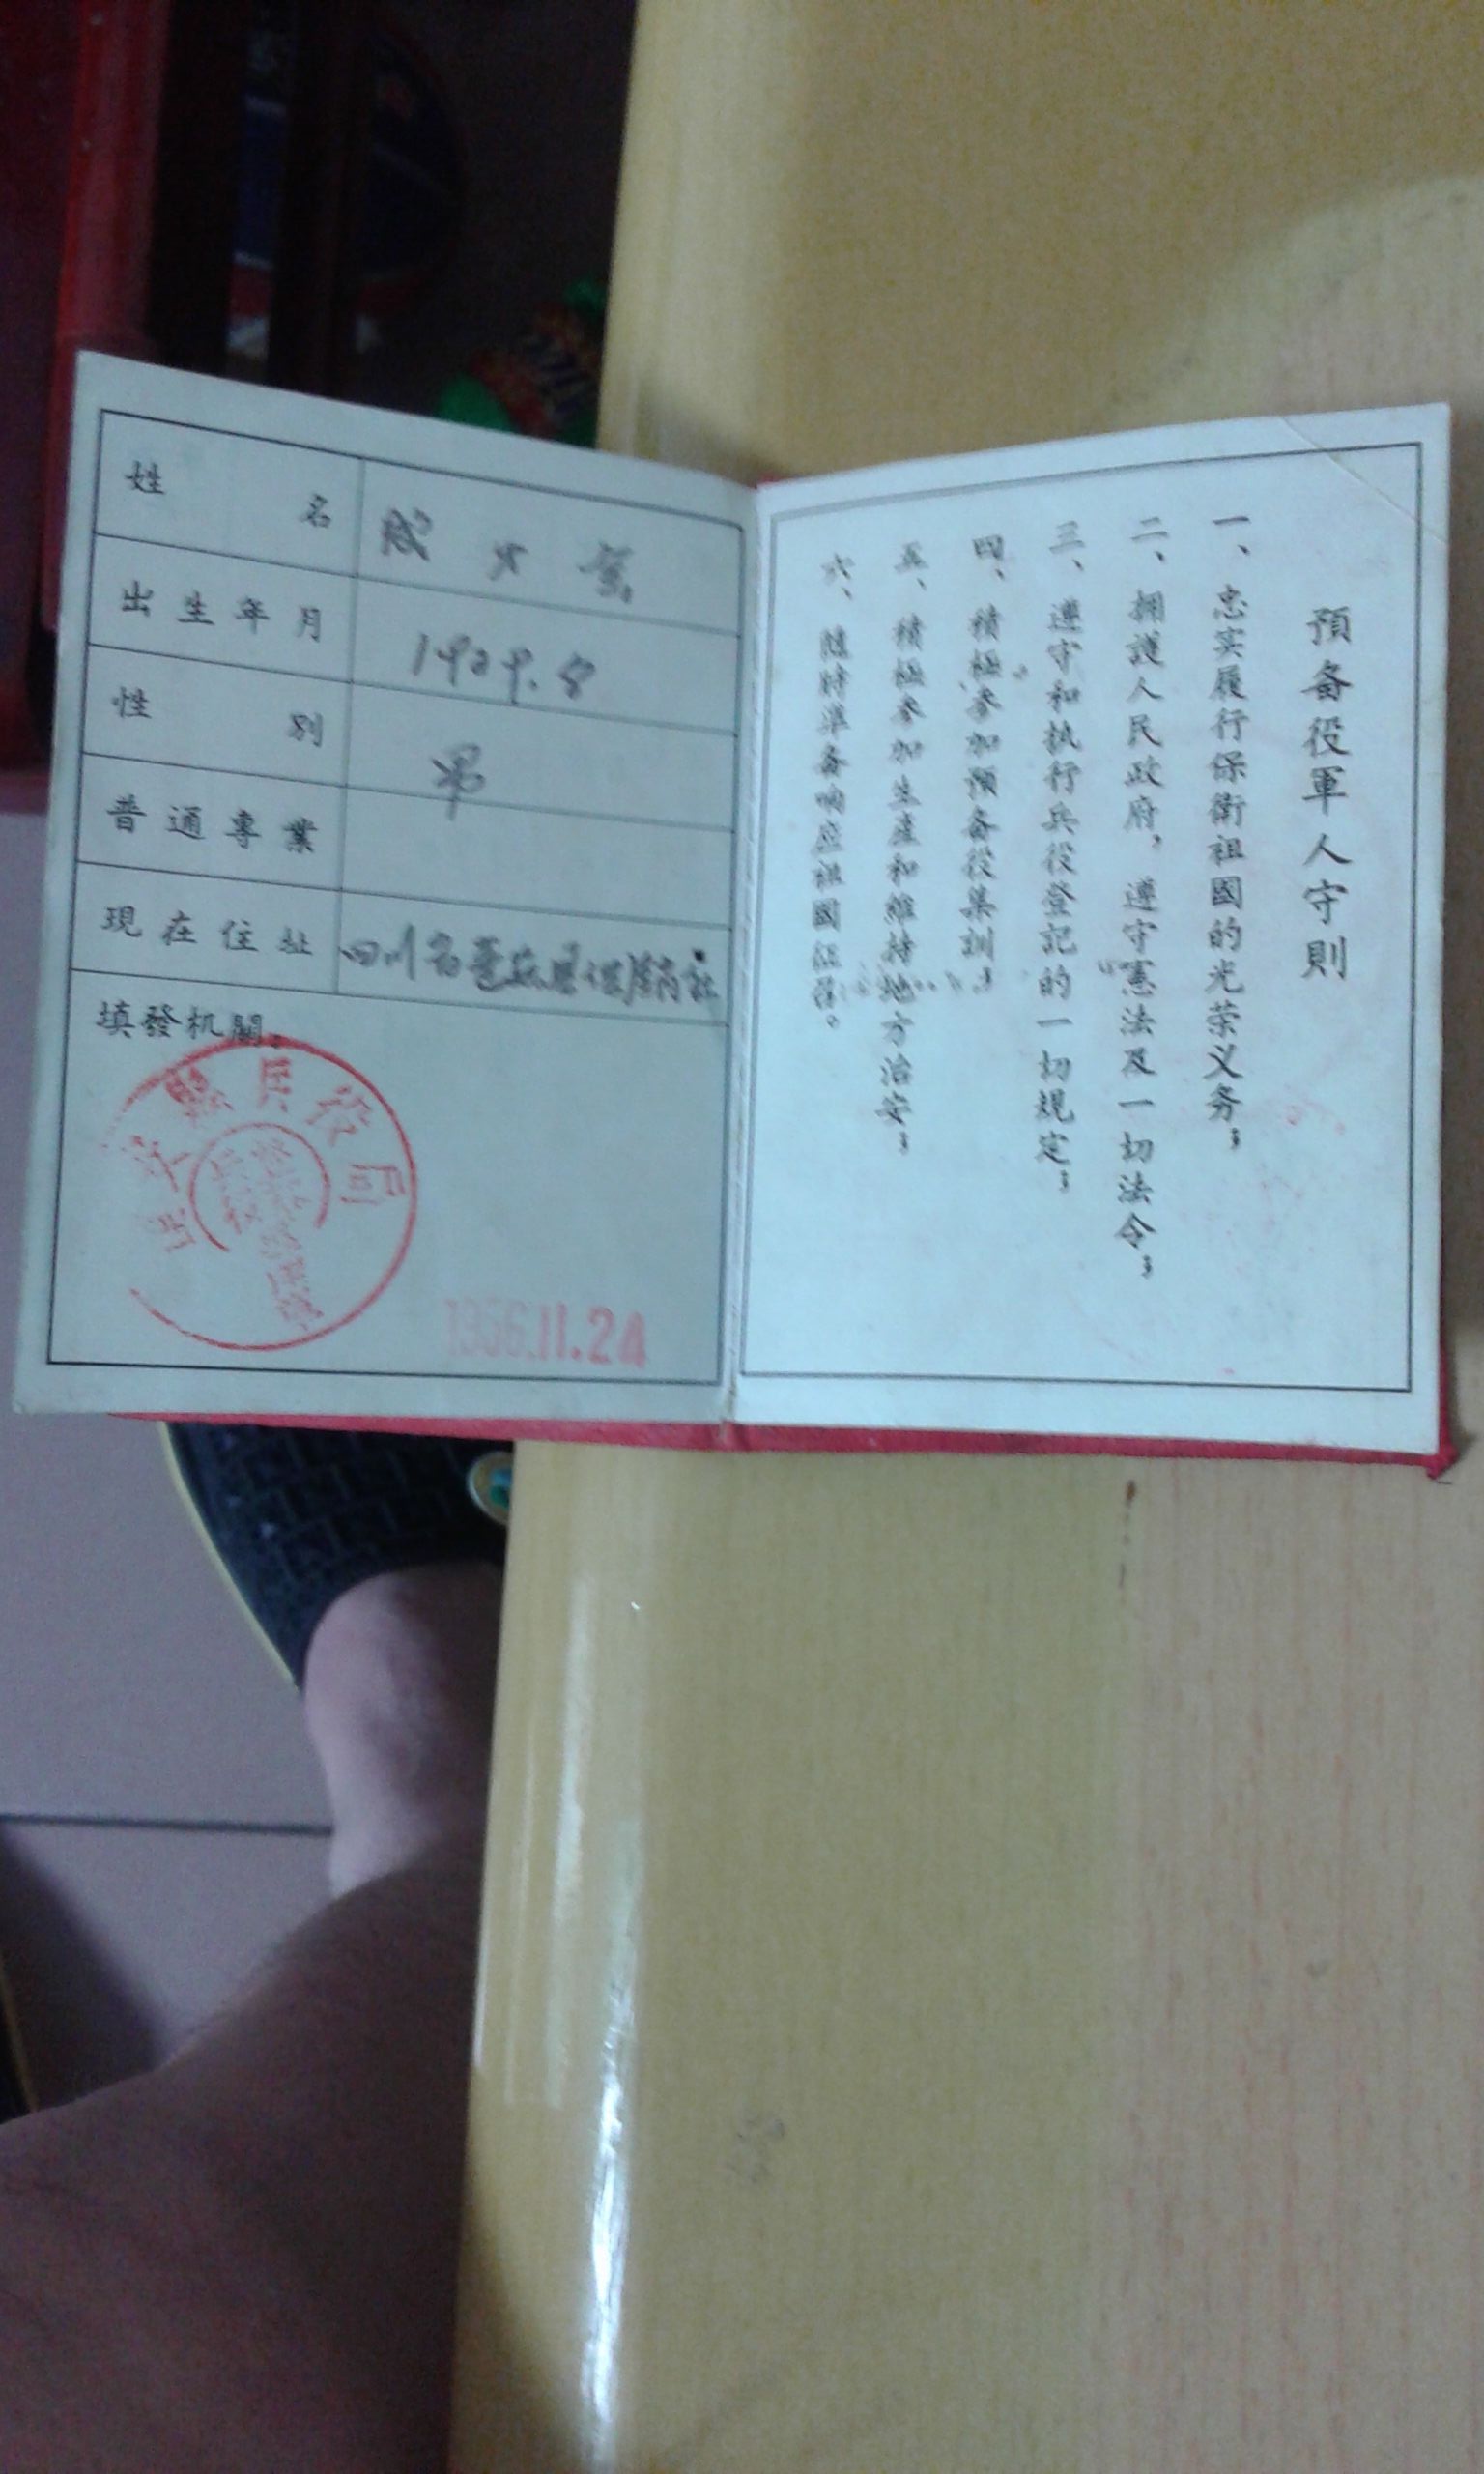 姓名
出生年月 1929.8
性別 男
普通專業
現在住址 四川省 县供銷社
填發机關：
縣兵役局
1956.11.24
預备役軍人守則
一、忠实履行保衛祖國的光荣义务；
二、拥護人民政府，遵守憲法及一切法令；
三、遵守和执行兵役登記的一切規定；
四、積極参加預备役集訓；
五、積極参加生産和維持地方治安；
六、隨時準备响应祖國征召。